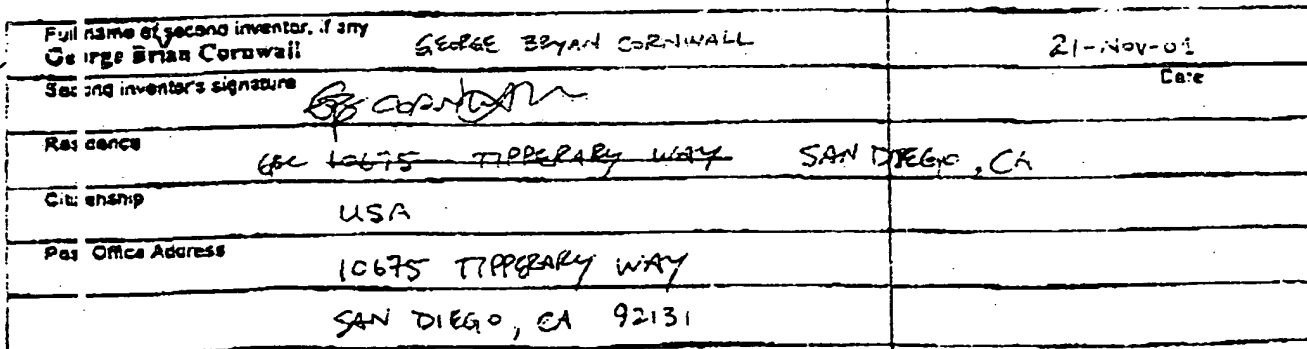 Full name of second inventor, if any
George Brian Cornwall GEORGE BRYAN CORNWALL 21-Nov-01
Date
Second inventor's signature
GB CORNWALL
Residence
GBC 10675 TIPPERARY WAY SAN DIEGO, CA
Citizenship
USA
Post Office Address
10675 TIPPERARY WAY
SAN DIEGO, CA 92131